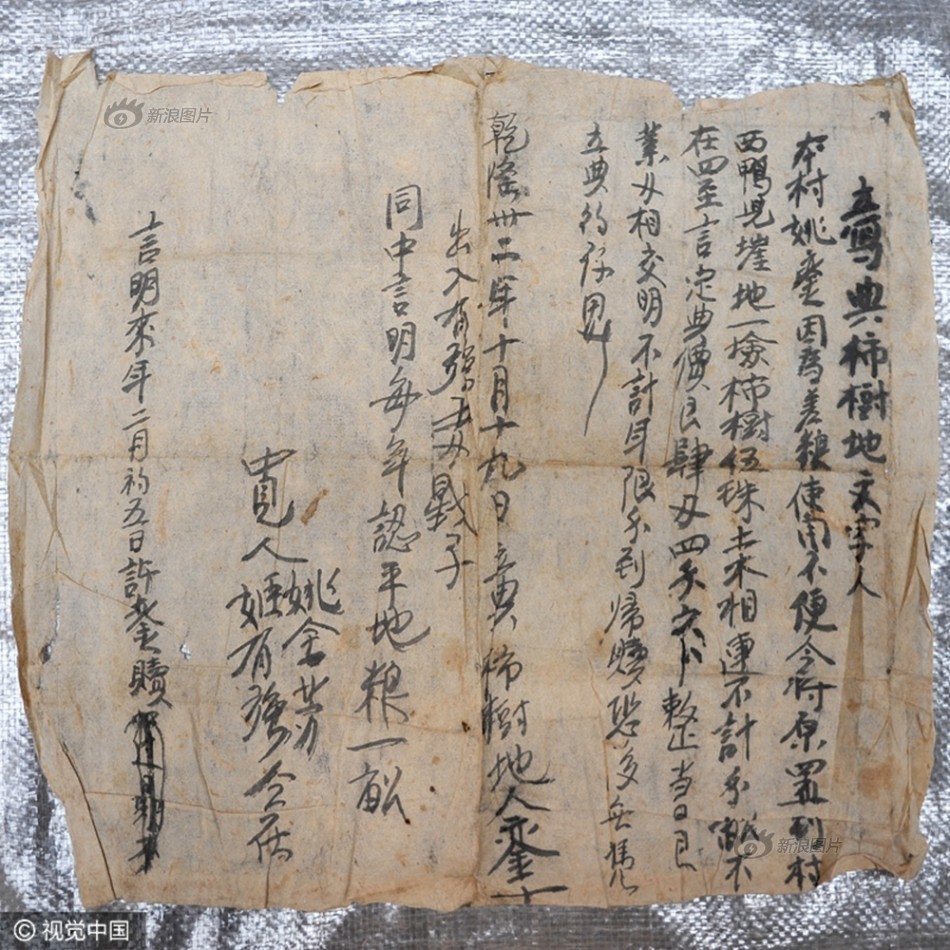 立寫典柿樹地文字人
本村姚奎因為差糧使用不便今將原置到村
西鴨兒嘴地一塅柿樹伍珠土木相連不計分畝不
在四至言定典價艮肆刄四分六卜整当日艮
業刄相交明不計年限分到歸贖恐多無憑
立典約存用
乾隆卅二年十月十九日立典柿樹地人奎十
出入有強玉刄戥子
同中言明每年認平地粮一畝
姚金
中見人姬有強仝在
言明來年二月初五日許奎贖
新浪图片
新浪图片
© 视觉中国